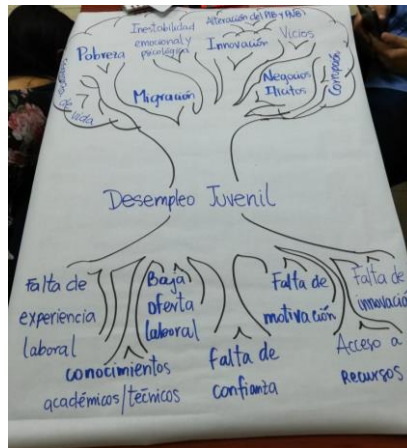 Alteración del PIB y PNB
Inestabilidad
emocional y
psicológica
Vicios
Pobreza
Innovación
Migración
Negocios
Ilícitos
Corrupción
de vida
Desempleo Juvenil
Falta de
experiencia
laboral
Baja
oferta
laboral
Falta de
motivación
Falta de
innovació
conocimientos
académicos/técnicos
falta de
confianza
Acceso a
Recursos